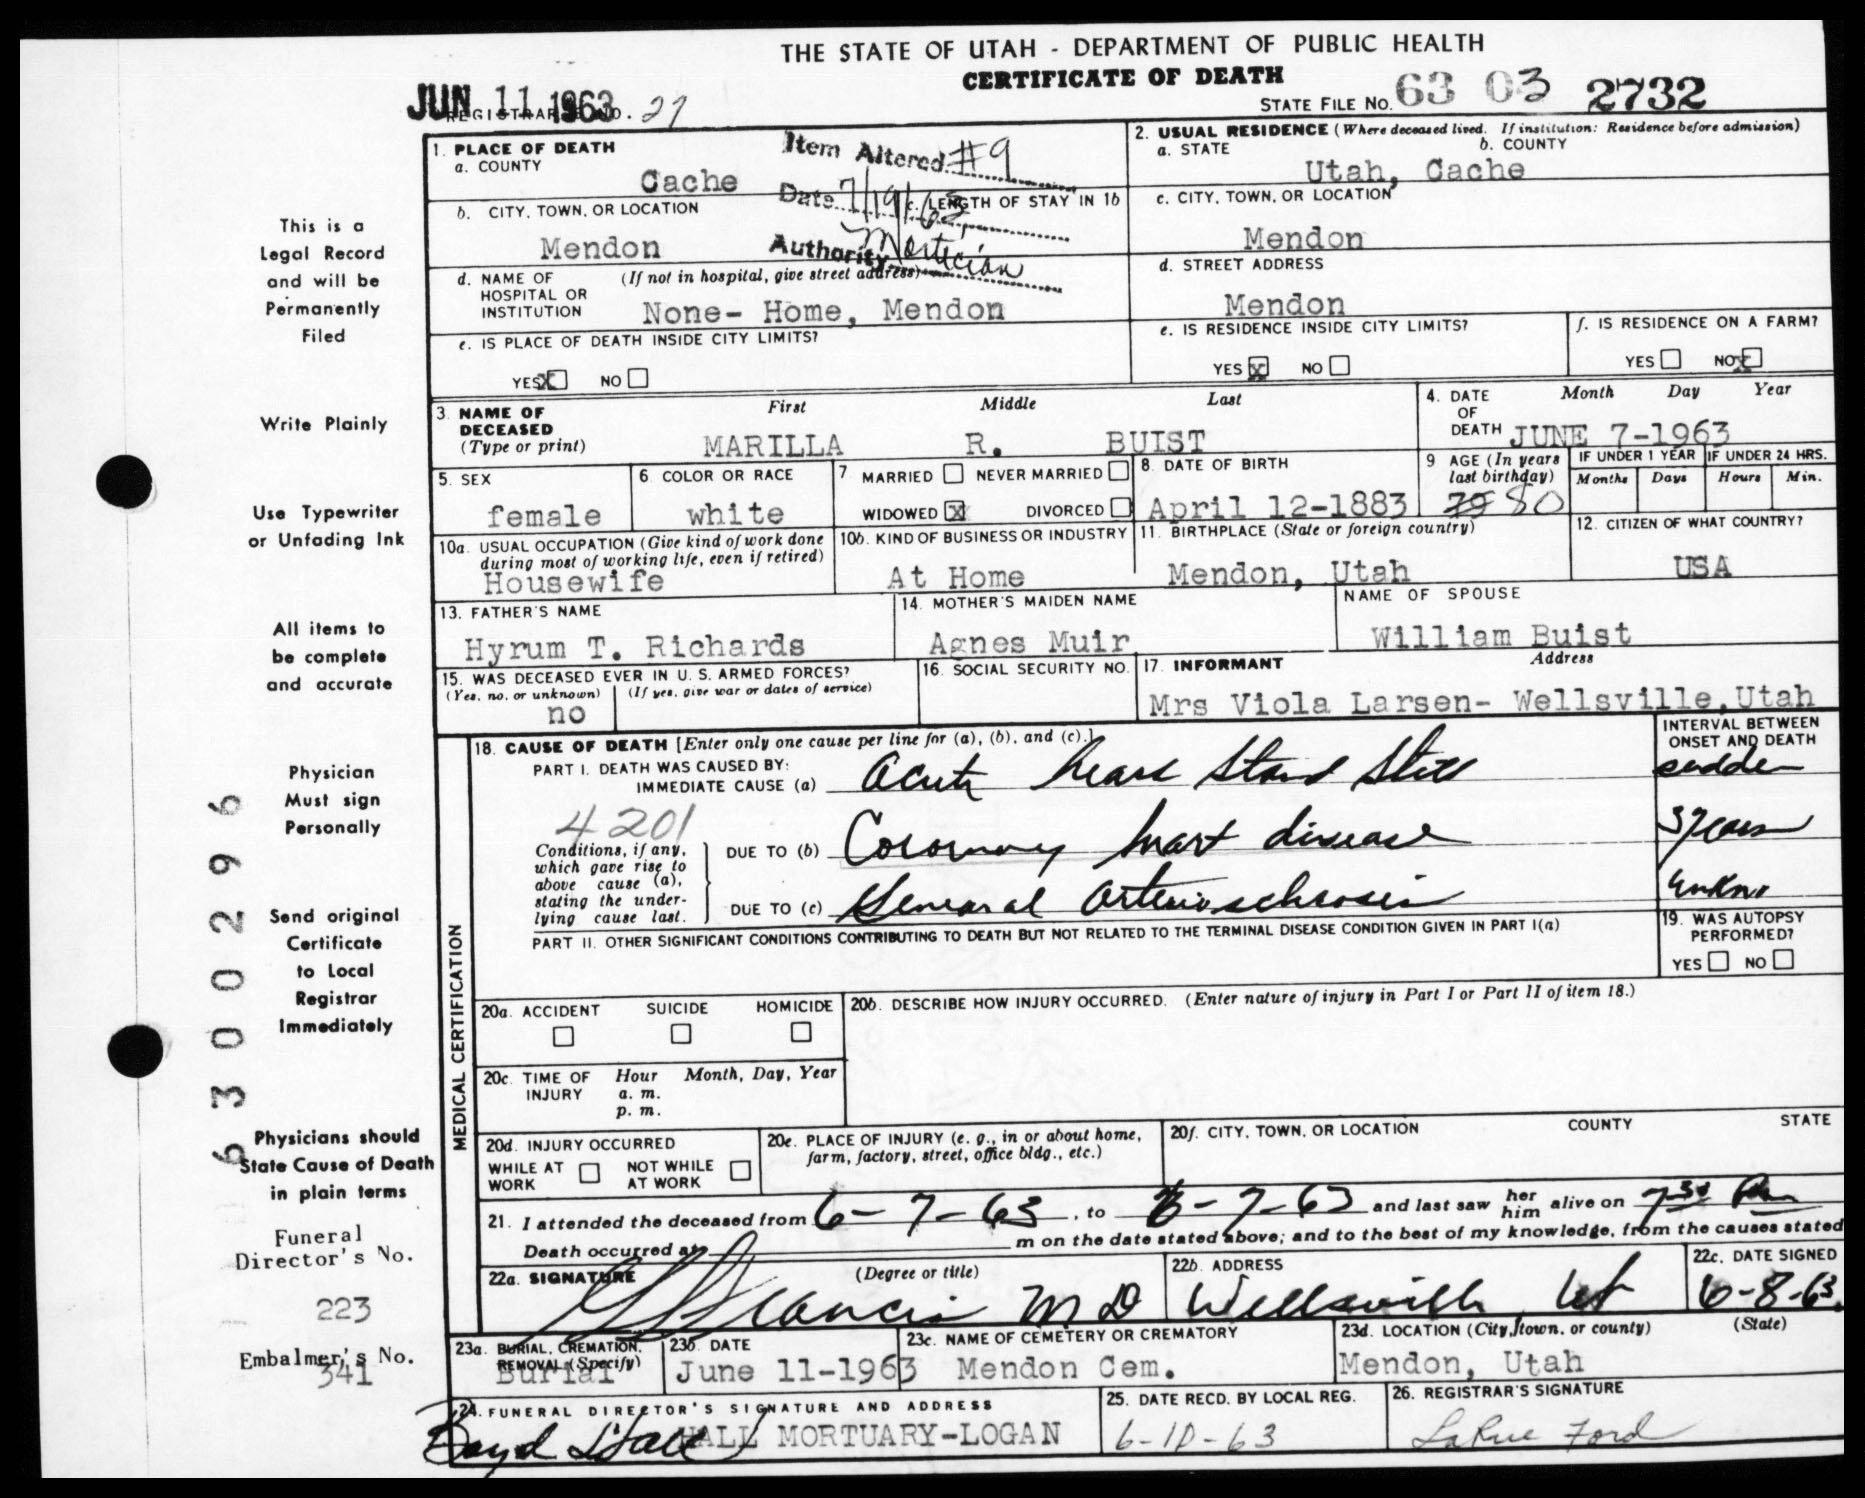 THE STATE OF UTAH - DEPARTMENT OF PUBLIC HEALTH
CERTIFICATE OF DEATH
JUN 11 1963
REGISTRAR'S NO. 27
STATE FILE NO. 63 03 2732
This is a
Legal Record
and will be
Permanently
Filed
Write Plainly
Use Typewriter
or Unfading Ink
All items to
be complete
and accurate
Physician
Must sign
Personally
Send original
Certificate
to Local
Registrar
Immediately
Physicians should
State Cause of Death
in plain terms
Funeral
Director's No.
223
Embalmer's No.
341
6300296
Item Altered #9
Date 7/19/63
Authority Mortician
1. PLACE OF DEATH
a. COUNTY
Cache
2. USUAL RESIDENCE (Where deceased lived. If institution: Residence before admission)
a. STATE b. COUNTY
Utah, Cache
b. CITY, TOWN, OR LOCATION
Mendon
c. LENGTH OF STAY IN 1b
c. CITY, TOWN, OR LOCATION
Mendon
d. NAME OF HOSPITAL OR INSTITUTION (If not in hospital, give street address)
None- Home, Mendon
d. STREET ADDRESS
Mendon
e. IS PLACE OF DEATH INSIDE CITY LIMITS?
YES X NO
e. IS RESIDENCE INSIDE CITY LIMITS?
YES X NO
f. IS RESIDENCE ON A FARM?
YES NO X
3. NAME OF DECEASED (Type or print)
First Middle Last
MARILLA R. BUIST
4. DATE OF DEATH Month Day Year
JUNE 7-1963
5. SEX
female
6. COLOR OR RACE
white
7 MARRIED NEVER MARRIED
WIDOWED X DIVORCED
8. DATE OF BIRTH
April 12-1883
9 AGE (In years last birthday)
79 80
IF UNDER 1 YEAR IF UNDER 24 HRS.
Months Days Hours Min.
10a. USUAL OCCUPATION (Give kind of work done during most of working life, even if retired)
Housewife
10b. KIND OF BUSINESS OR INDUSTRY
At Home
11. BIRTHPLACE (State or foreign country)
Mendon, Utah
12. CITIZEN OF WHAT COUNTRY?
USA
13. FATHER'S NAME
Hyrum T. Richards
14. MOTHER'S MAIDEN NAME
Agnes Muir
NAME OF SPOUSE
William Buist
15. WAS DECEASED EVER IN U. S. ARMED FORCES?
(Yes, no, or unknown) (If yes, give war or dates of service)
no
16. SOCIAL SECURITY NO.
17. INFORMANT Address
Mrs Viola Larsen- Wellsville, Utah
MEDICAL CERTIFICATION
18. CAUSE OF DEATH [Enter only one cause per line for (a), (b), and (c).]
INTERVAL BETWEEN ONSET AND DEATH
PART I. DEATH WAS CAUSED BY:
IMMEDIATE CAUSE (a) Acute heart Stand Still sudden
4201
Conditions, if any, which gave rise to above cause (a), stating the underlying cause last.
DUE TO (b) Coronary heart disease 3 years
DUE TO (c) General arteriosclerosis unkn
PART II. OTHER SIGNIFICANT CONDITIONS CONTRIBUTING TO DEATH BUT NOT RELATED TO THE TERMINAL DISEASE CONDITION GIVEN IN PART I(a)
19. WAS AUTOPSY PERFORMED?
YES NO
20a. ACCIDENT SUICIDE HOMICIDE
20b. DESCRIBE HOW INJURY OCCURRED. (Enter nature of injury in Part I or Part II of item 18.)
20c. TIME OF INJURY Hour Month, Day, Year
a. m.
p. m.
20d. INJURY OCCURRED
WHILE AT WORK NOT WHILE AT WORK
20e. PLACE OF INJURY (e. g., in or about home, farm, factory, street, office bldg., etc.)
20f. CITY, TOWN, OR LOCATION COUNTY STATE
21. I attended the deceased from 6-7-63, to 6-7-63 and last saw her him alive on 7 30 Pm
Death occurred at m on the date stated above; and to the best of my knowledge, from the causes stated
22a. SIGNATURE (Degree or title)
Francis M D
22b. ADDRESS
Wellsville, Ut
22c. DATE SIGNED
6-8-63
23a. BURIAL, CREMATION, REMOVAL (Specify)
Burial
23b. DATE
June 11-1963
23c. NAME OF CEMETERY OR CREMATORY
Mendon Cem.
23d. LOCATION (City, town, or county) (State)
Mendon, Utah
24. FUNERAL DIRECTOR'S SIGNATURE AND ADDRESS
Boyd Hall HALL MORTUARY-LOGAN
25. DATE RECD. BY LOCAL REG.
6-10-63
26. REGISTRAR'S SIGNATURE
LaRue Ford